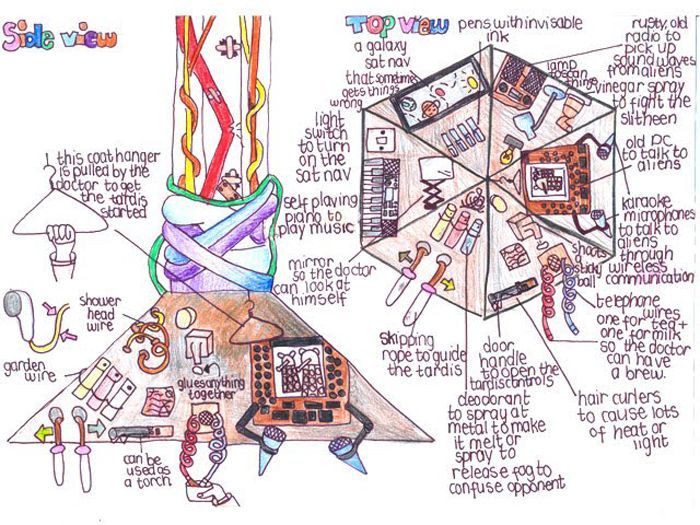 Side view
Top view
this coat hanger
is pulled by the
doctor to get
the tardis
started
shower
head
wire
garden
wire
glues anything
together
can be
used as
a torch
a galaxy
sat nav
that sometimes
gets things
wrong
light
switch
to turn
on the
sat nav
self playing
piano to
play music
mirror
so the doctor
can look at
himself
skipping
rope to guide
the tardis
pens with invisible
ink
lamp
to scan
things
rusty, old
radio to
pick up
sound waves
from aliens
vinegar spray
to fight the
slitheen
old PC
to talk to
aliens
karaoke
microphones
to talk to
aliens
through
wireless
communication
shoots
a
sticky
ball
telephone
wires
one for tea +
one for milk
so the doctor
can have
a brew.
door
handle
to open the
tardis controls
hair curlers
to cause lots
of heat or
light
deodorant
to spray at
metal to make
it melt or
spray to
release fog to
confuse opponent